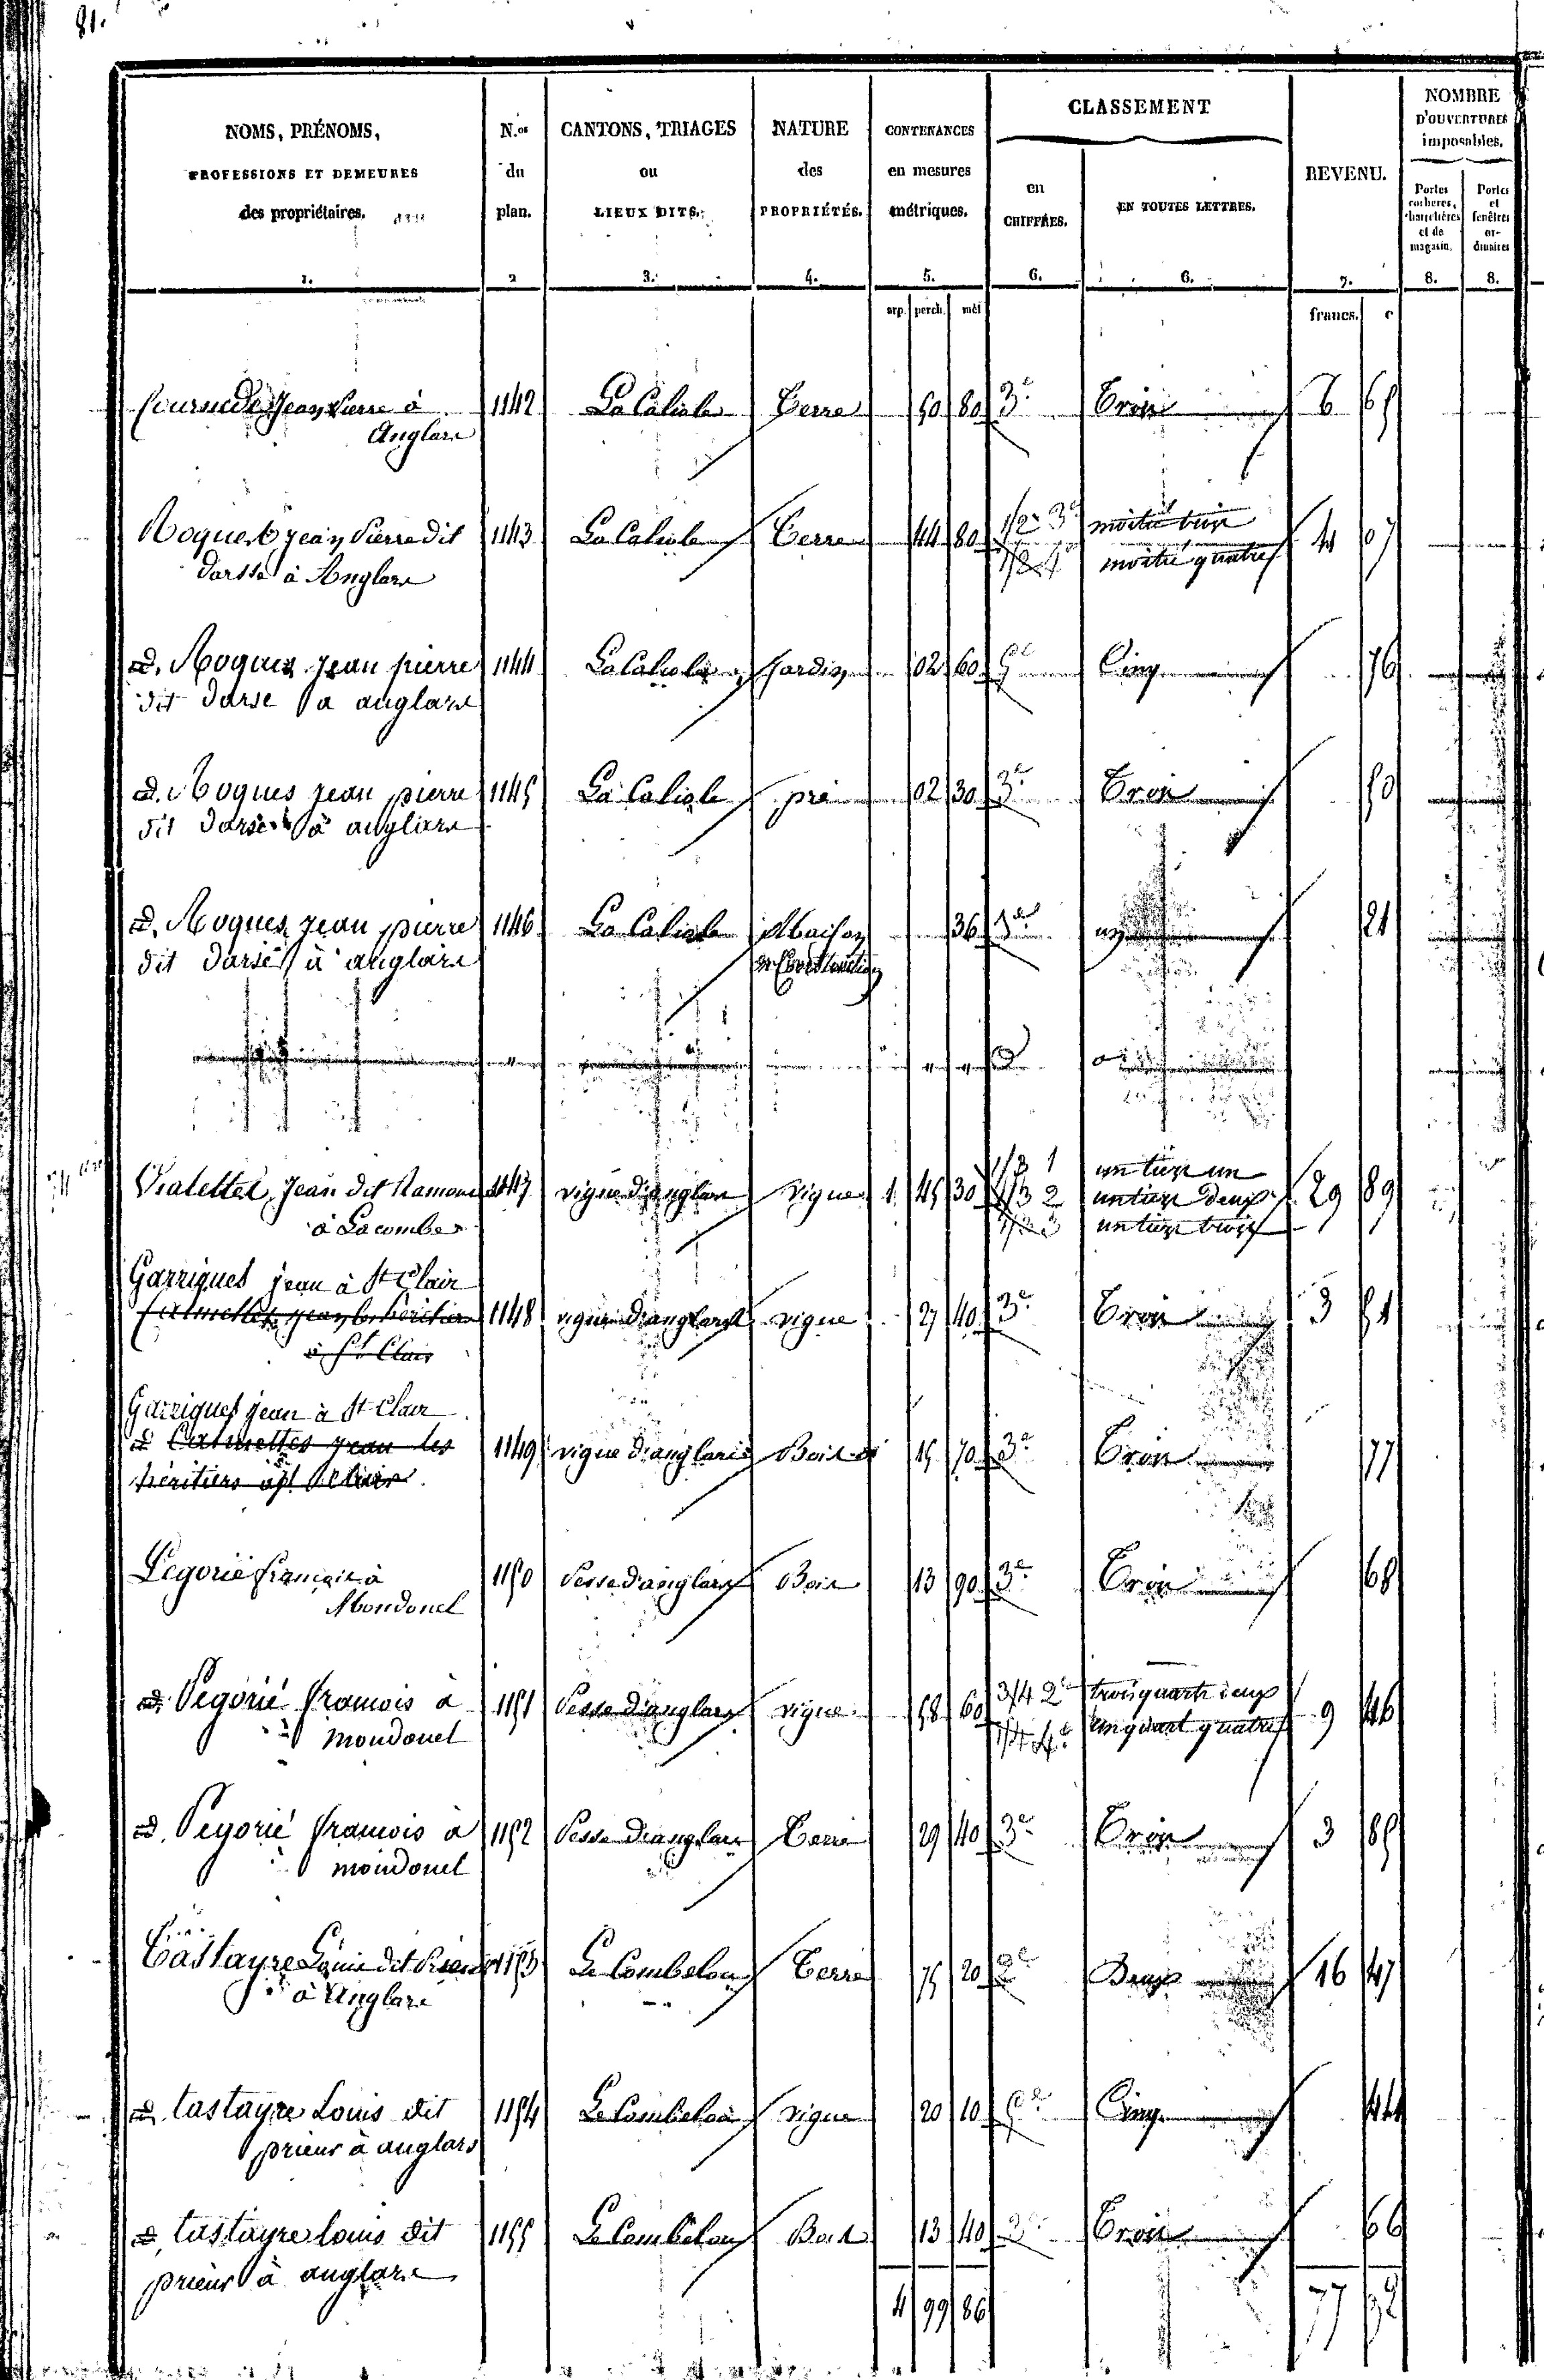 81.
CLASSEMENT
NOMBRE
D'OUVERTURES
imposables.
NOMS, PRÉNOMS, N.os CANTONS, TRIAGES NATURE CONTENANCES
PROFESSIONS ET DEMEURES du ou des en mesures en REVENU.
des propriétaires. plan. LIEUX DITS. PROPRIÉTÉS. métriques. CHIFFRES. EN TOUTES LETTRES.
Portes cochères, charretières et de magasin. Portes et fenêtres ordinaires
1. 2 3. 4. 5. 6. 6. 7. 8. 8.
arp. perch. mèt francs. c
Jean Pierre à 1142 Terre 50 80 3e Trois 6 65
Anglars
Roques Jean Pierre dit 1143 Terre 44 80 1/2 3e moitié trois 4 07
Darsse à Anglars 1/2 4e moitié quatre
d. Roques Jean pierre 1144 Jardin 02 60 5e Cinq 76
dit darse a anglars
d. Roques jean pierre 1145 pré 02 30 3e Trois 50
dit darse à anglars
d. Roques jean pierre 1146 Maison 36 1ere un 21
dit darse à anglars en Construction
Jean dit Ramond 1147 vigne d'anglars vigne 1 45 30 1/3 1 un tiers un 29 89
à Lacombe 1/3 2 un tiers deux
1/3 3 un tiers trois
Garrigues jean à St Clair
Calmettes jean les héritiers 1148 vigne d'anglars vigne 27 40 3e Trois 3 51
à St Clair
Garrigues jean à St Clair
d Calmettes jean les 1149 vigne d'anglars Bois 15 70 3e Trois 77
héritiers à St Clair
Pegorié françois à 1150 Pesse d'anglars Bois 13 90 3e Trois 68
Mondonel
d. Pegorié francois à 1151 Pesse d'anglars vigne 58 60 3/4 2e trois quarts deux 9 46
mondonel 1/4 4e un quart quatre
d. Pegorié francois à 1152 Pesse d'anglars Terre 29 40 3e Trois 3 85
mondonel
Tastayre Louis dit Prieur 1153 Le Combelou Terre 75 20 2e Deux 16 47
à Anglars
d. tastayre Louis dit 1154 Le Combelou vigne 20 10 5e Cinq 44
prieur à anglars
d. tastayre louis dit 1155 Le Combelou Bois 13 40 3e Trois 66
prieur à anglars
4 99 86 77 92